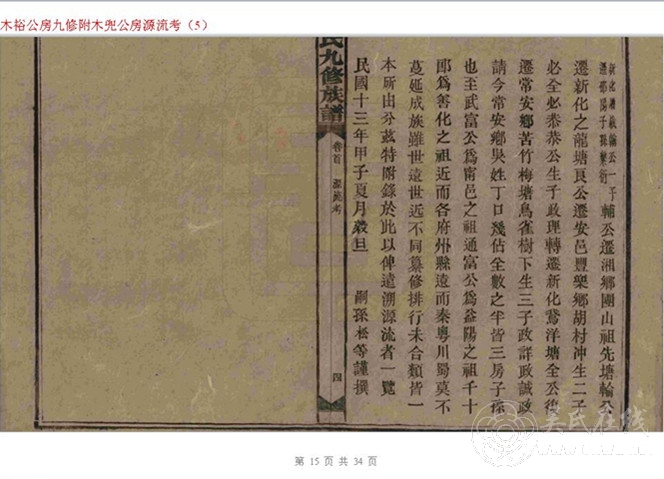 木裕公房九修附木兜公房源流考（5）
輔公遷湘鄉團山祖先塘輪公
遷新化之龍塘良公遷安邑豐樂鄉胡村冲生二子
必全必泰泰公生子政理轉遷新化鴛洋塘全公復
遷常安鄉苦竹梅塘鳥雀樹下生三子政詳政誠政
請今常安鄉吳姓丁口幾佔全數之半皆三房子孫
也至武富公爲甯邑之祖通富公爲益陽之祖千十
郎爲善化之祖近而各府州縣遠而秦粵川蜀莫不
蔓延成族雖世遠世近不同纂修排行未合類皆一
本所由分茲特附錄於此以俾遠溯源流者一覽
民國十三年甲子夏月穀旦 嗣孫松等謹撰
氏九修族譜
卷首 源流考
四
吴氏在线
第 15 页 共 34 页